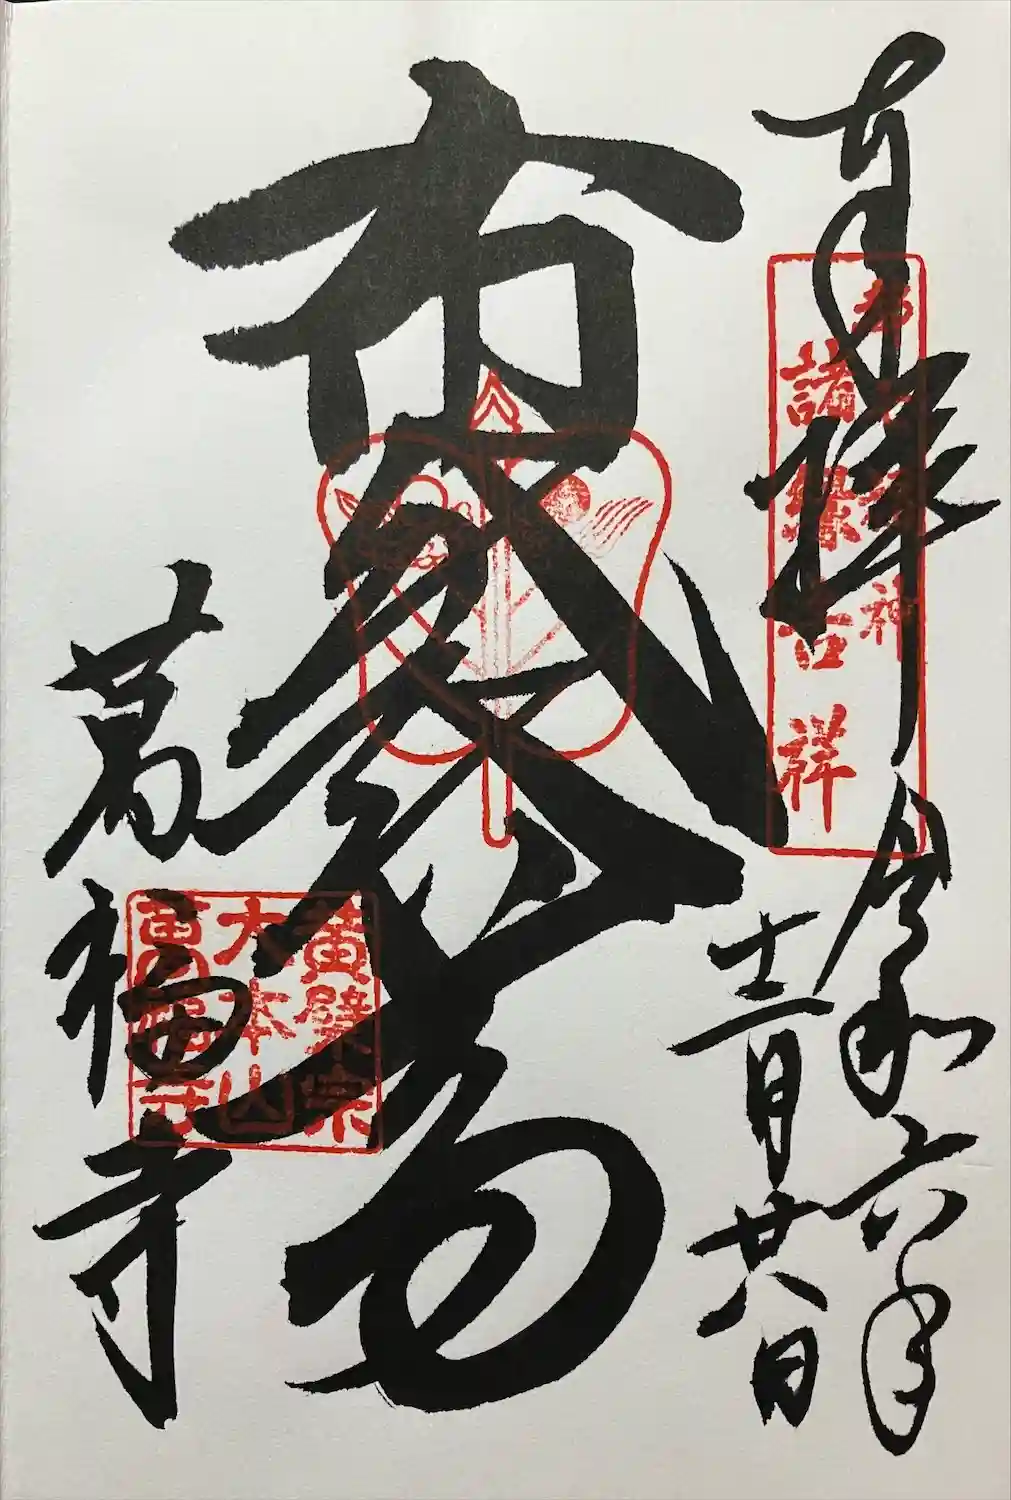 奉拝
都七福神
諸縁吉祥
令和六年
十二月廿八日
布袋尊
黄檗宗
大本山
萬福寺
萬福寺